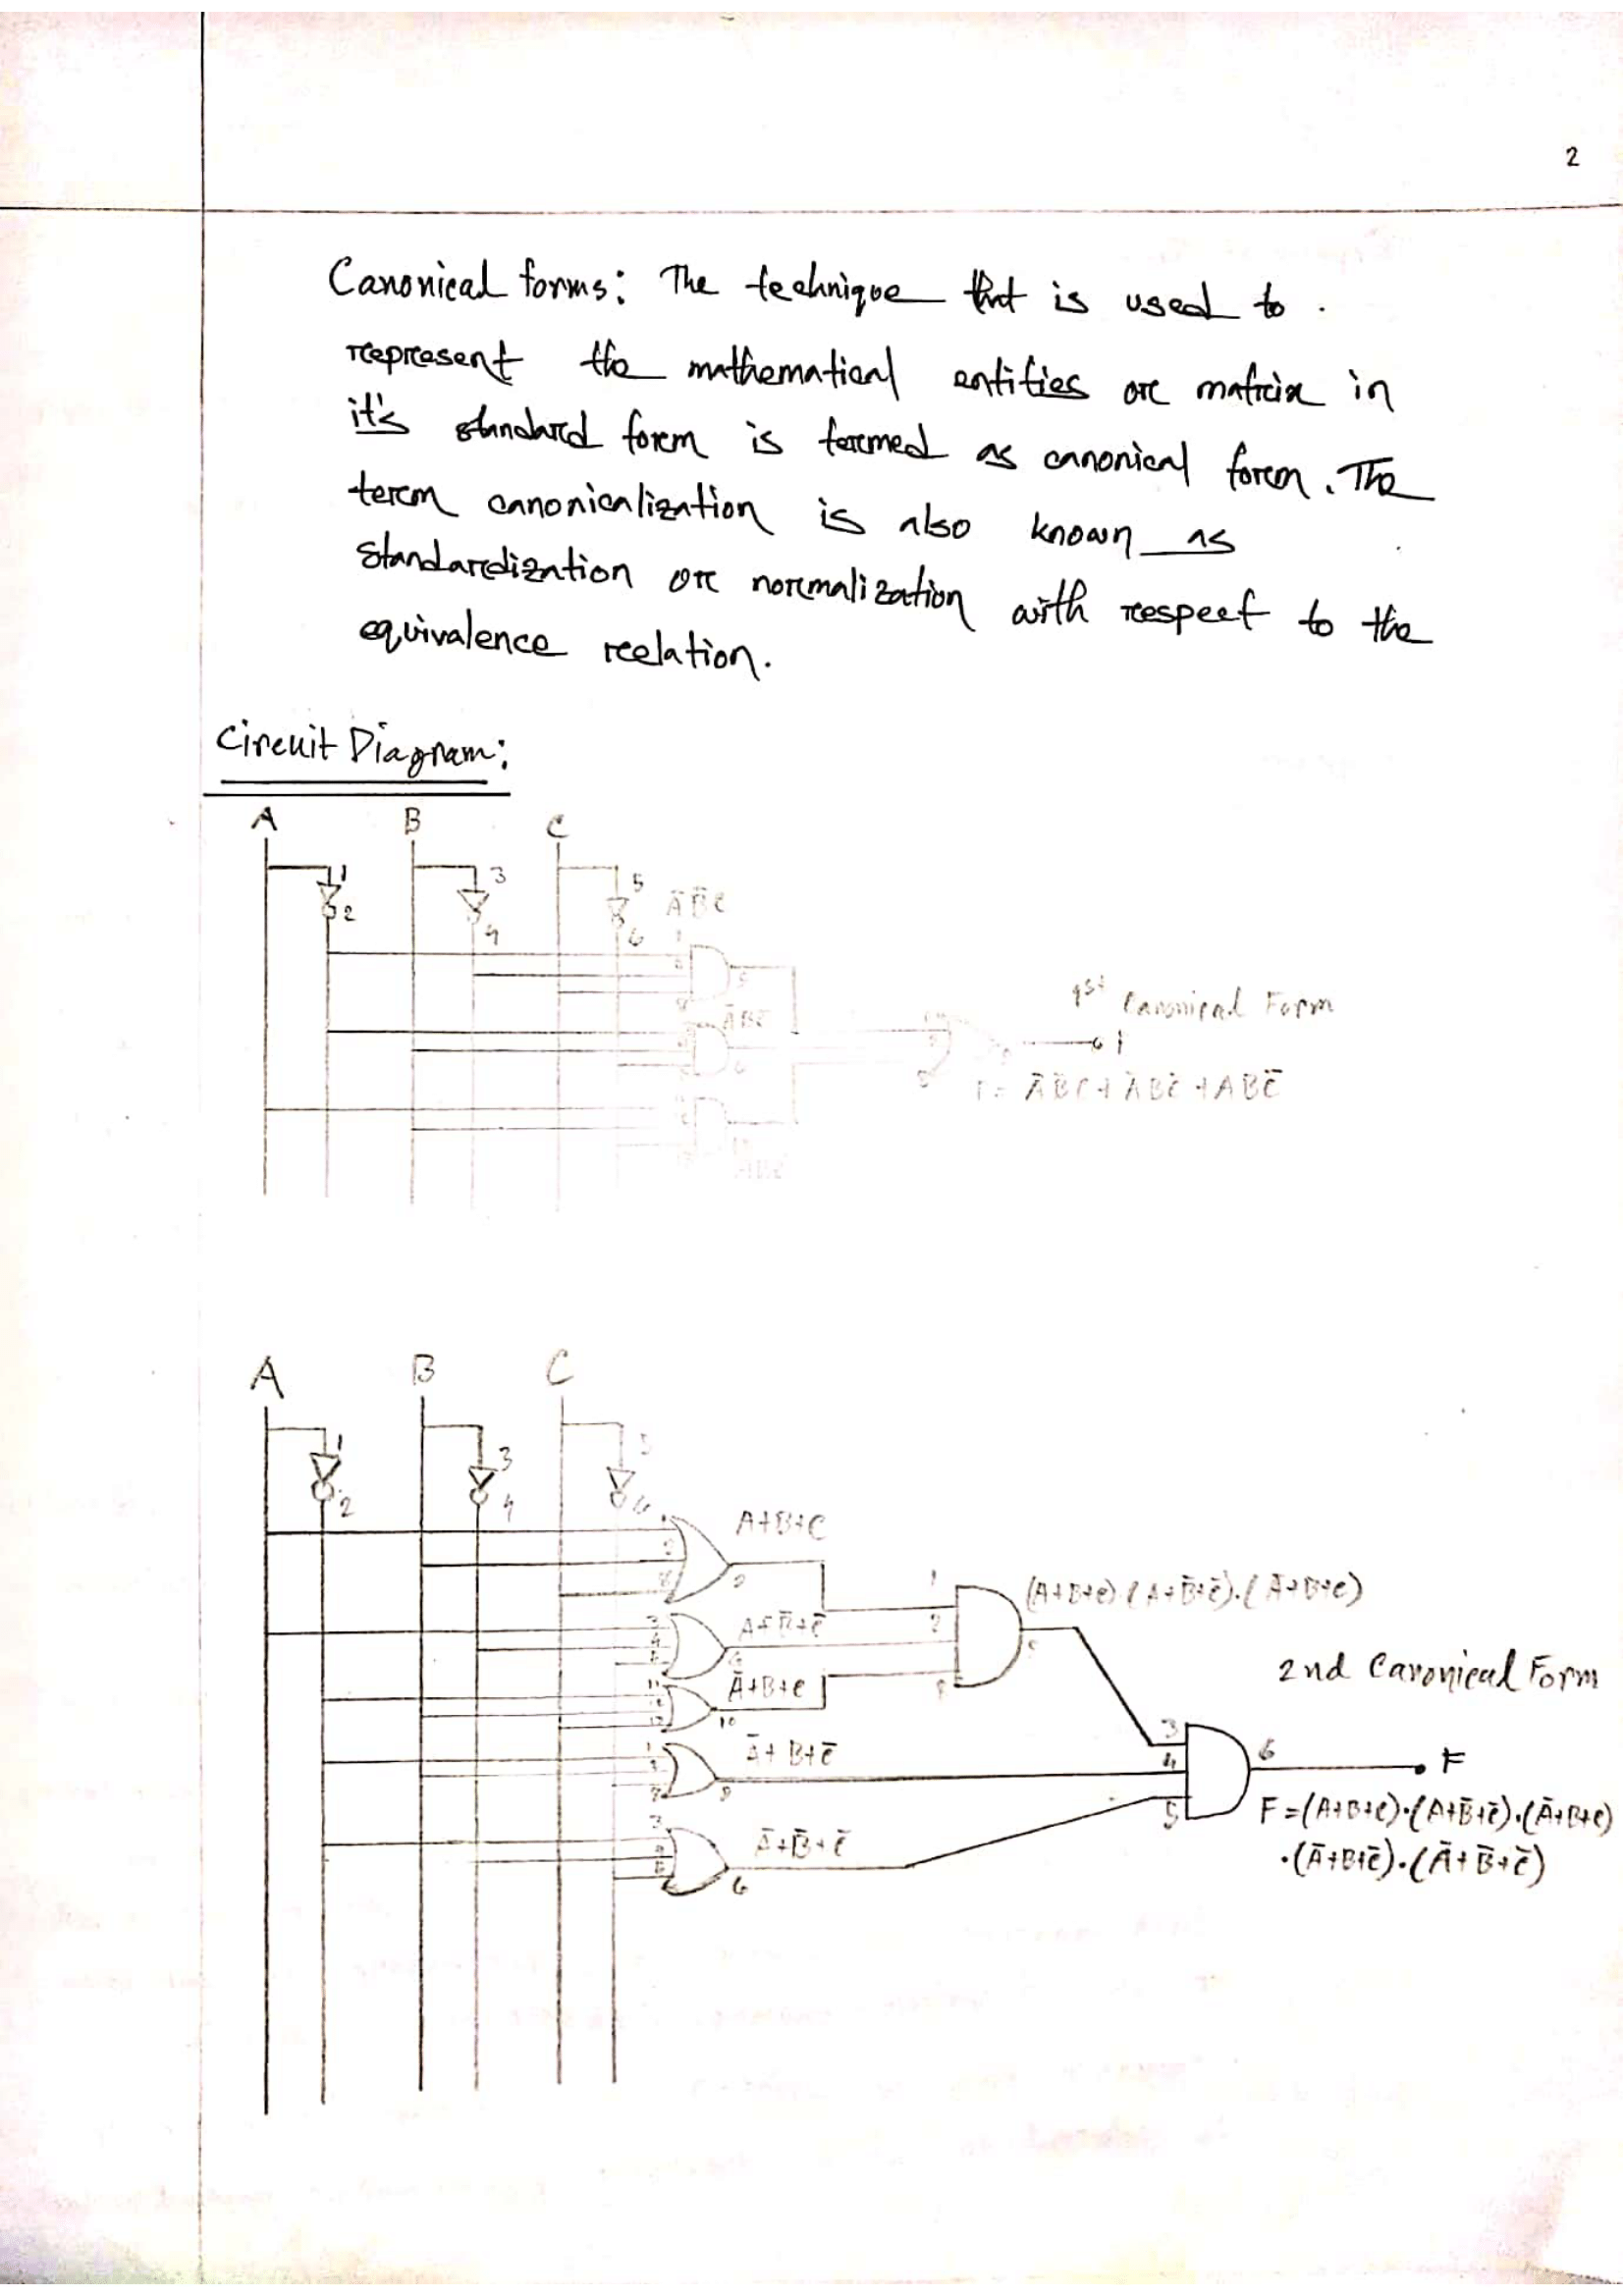 2
Canonical forms: The technique that is used to
represent the mathematical entities or matrix in
it's standard form is termed as canonical form. The
term canonicalization is also known as
standardization or normalization with respect to the
equivalence relation.
Circuit Diagram:
A B C
1 3 5
2 4 6
A̅B̅C
A̅BC̅
1st Canonical Form
F = A̅B̅C + A̅BC̅ + ABC̅
A B C
1 3 5
2 4 6
A+B+C
(A+B+C).(A+B̅+C̅).(A̅+B+C)
A+B̅+C̅
2nd Canonical Form
A̅+B+C
10
A̅+B+C̅
3
4
5
6
F
F=(A+B+C).(A+B̅+C̅).(A̅+B+C)
.(A̅+B+C̅).(A̅+B̅+C̅)
A̅+B̅+C̅
6